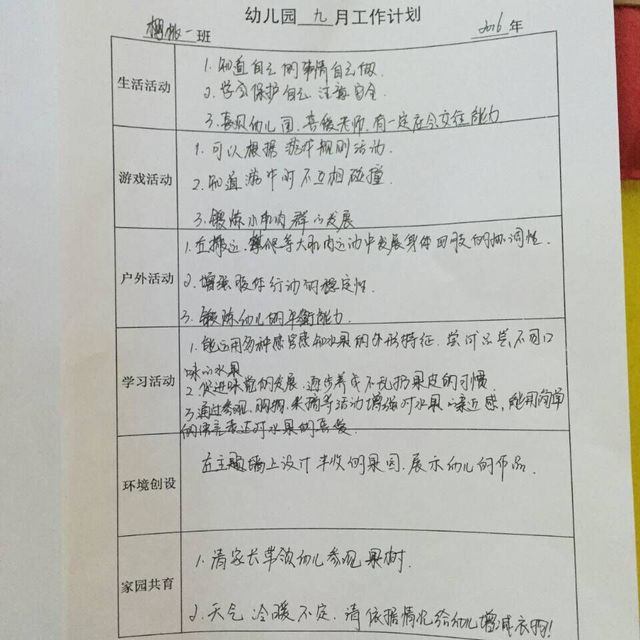 幼儿园 九 月工作计划
一 班
2016 年
生活活动
1.知道自己的事情自己做.
2.学习保护自己,注意安全
3.喜欢幼儿园.喜欢老师.有一定社会交往能力
游戏活动
1.可以根据游戏规则活动.
2.知道游戏时不互相碰撞.
3.锻炼小肌肉群的发展
户外活动
1.在搬运、等大肌肉运动中发展身体四肢的协调性.
2.增强肢体行动的稳定性.
3.锻炼幼儿的平衡能力.
学习活动
1.能运用多种感官感知水果的外形特征.尝试品尝不同口
味的水果
2.促进味觉的发展.逐步养成不乱扔果皮的习惯.
3.通过参观、购物、采摘等活动增强对水果的亲近感,能用简单
的语言表达对水果的喜爱
环境创设
在主题墙上设计丰收的果园.展示幼儿的作品.
家园共育
1.请家长带领幼儿参观果树.
2.天气冷暖不定.请依据情况给幼儿增减衣物!